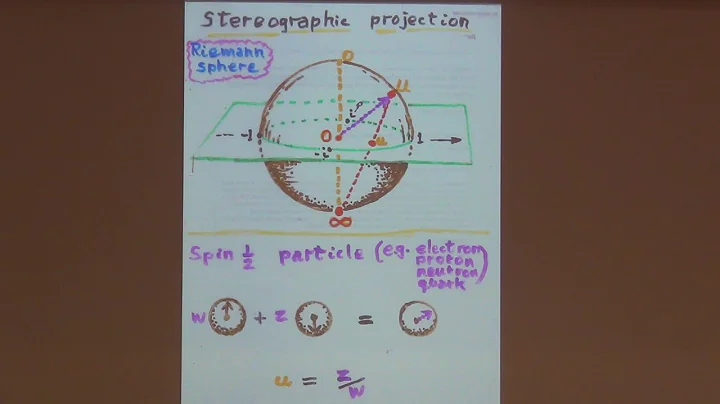 Stereographic projection
Riemann
sphere
0
u
-1
0
i
u
1
-i
∞
Spin 1/2 particle (e.g. electron
proton
neutron
quark)
w + z =
u = z/w